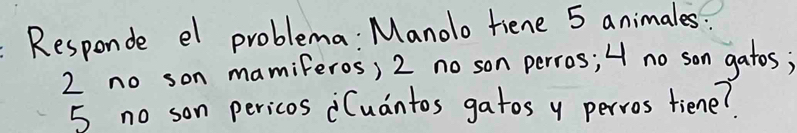 Responde el problema: Manolo tiene 5 animales:
2 no son mamiferos; 2 no son perros; 4 no son gatos;
5 no son pericos ¿Cuántos gatos y perros tiene?